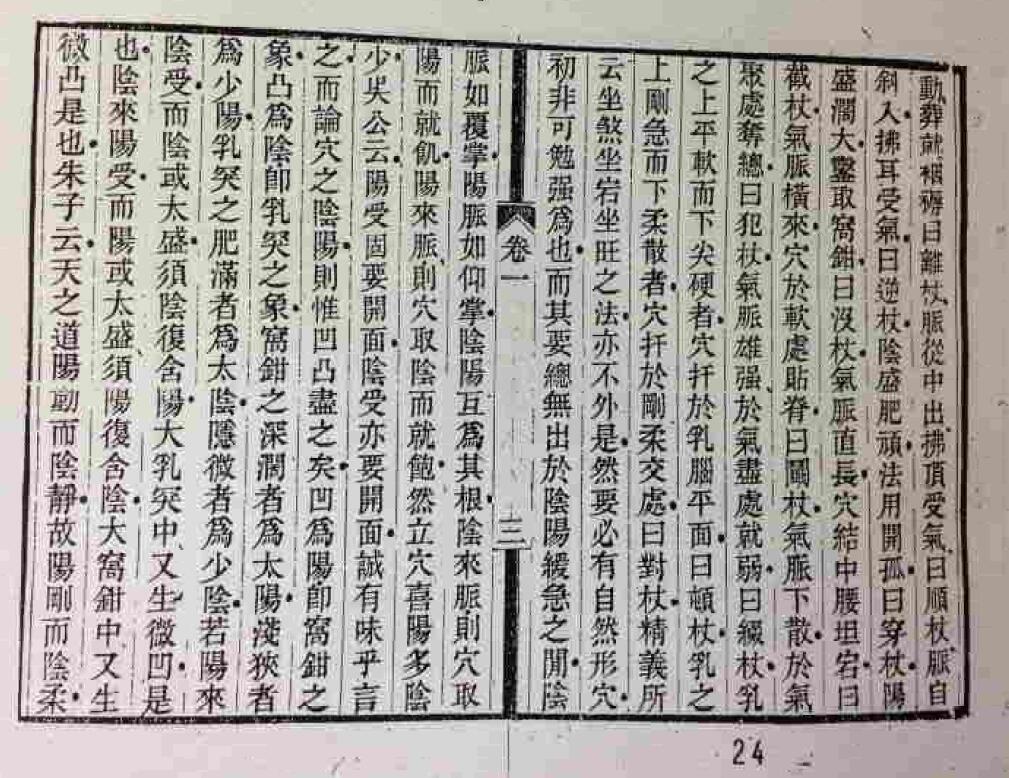 動葬就裀褥曰離杖脈從中出拂頂受氣曰順杖脈自
斜入拂耳受氣曰逆杖陰盛肥頑法用開孤曰穿杖陽
盛濶大鑿取窩鉗曰沒杖氣脈直長穴結中腰坦宕曰
截杖氣脈橫來穴於軟處貼脊曰闘杖氣脈下散於氣
聚處奪總曰犯杖氣脈雄强於氣盡處就弱曰綴杖乳
之上平軟而下尖硬者穴扦於乳腦平面曰頓杖乳之
上剛急而下柔散者穴扦於剛柔交處曰對杖精義所
云坐煞坐宕坐旺之法亦不外是然要必有自然形穴
初非可勉强爲也而其要總無出於陰陽緩急之間陰
卷一
三
脈如覆掌陽脈如仰掌陰陽互爲其根陰來脈則穴取
陽而就飢陽來脈則穴取陰而就飽然立穴喜陽多陰
少吳公云陽受固要開面陰受亦要開面誠有味乎言
之而論穴之陰陽則惟凹凸盡之矣凹爲陽卽窩鉗之
象凸爲陰卽乳突之象窩鉗之深濶者爲太陽淺狹者
爲少陽乳突之肥滿者爲太陰隱微者爲少陰若陽來
陰受而陰或太盛須陰復含陽大乳突中又生微凹是
也陰來陽受而陽或太盛須陽復含陰大窩鉗中又生
微凸是也朱子云天之道陽動而陰靜故陽剛而陰柔
24